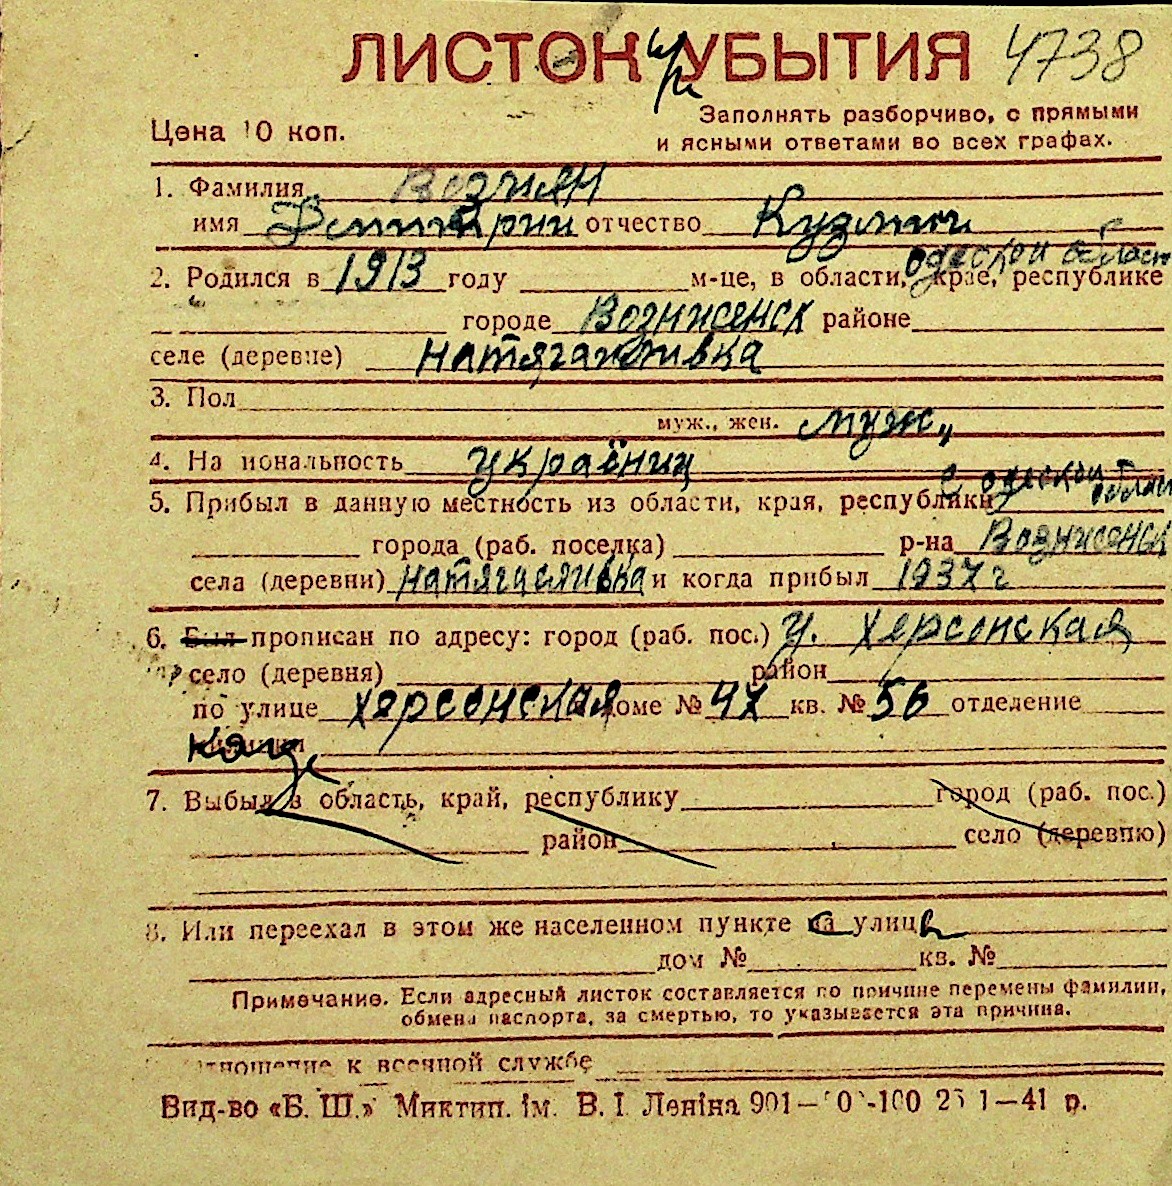 ЛИСТОК УБЫТИЯ 4738
Цена 10 коп.
Заполнять разборчиво, с прямыми
и ясными ответами во всех графах.
1. Фамилия Возиян
имя Дмитрий отчество Кузмич
2. Родился в 1913 году м-це, в области, крае, республике одеской област
городе Вознисенск районе
селе (деревне)
3. Пол
муж., жен. муж.
4. На иональность украёниц
5. Прибыл в данную местность из области, края, республики с одеской област
города (раб. поселка) р-на Вознисенск
села (деревни) и когда прибыл 1937 г
6. Был прописан по адресу: город (раб. пос.) у. Херсонская
село (деревня) район
по улице Херсонская доме № 47 кв. № 56 отделение
7. Выбыл в область, край, республику город (раб. пос.)
район село (деревню)
8. Или переехал в этом же населенном пункте на улицу
дом № кв. №
Примечание. Если адресный листок составляется по причине перемены фамилии,
обмена паспорта, за смертью, то указывается эта причина.
тношение к военной службе
Вид-во «Б. Ш.» Миктип. ім. В. І. Леніна 901— 0 -100 25 1—41 р.